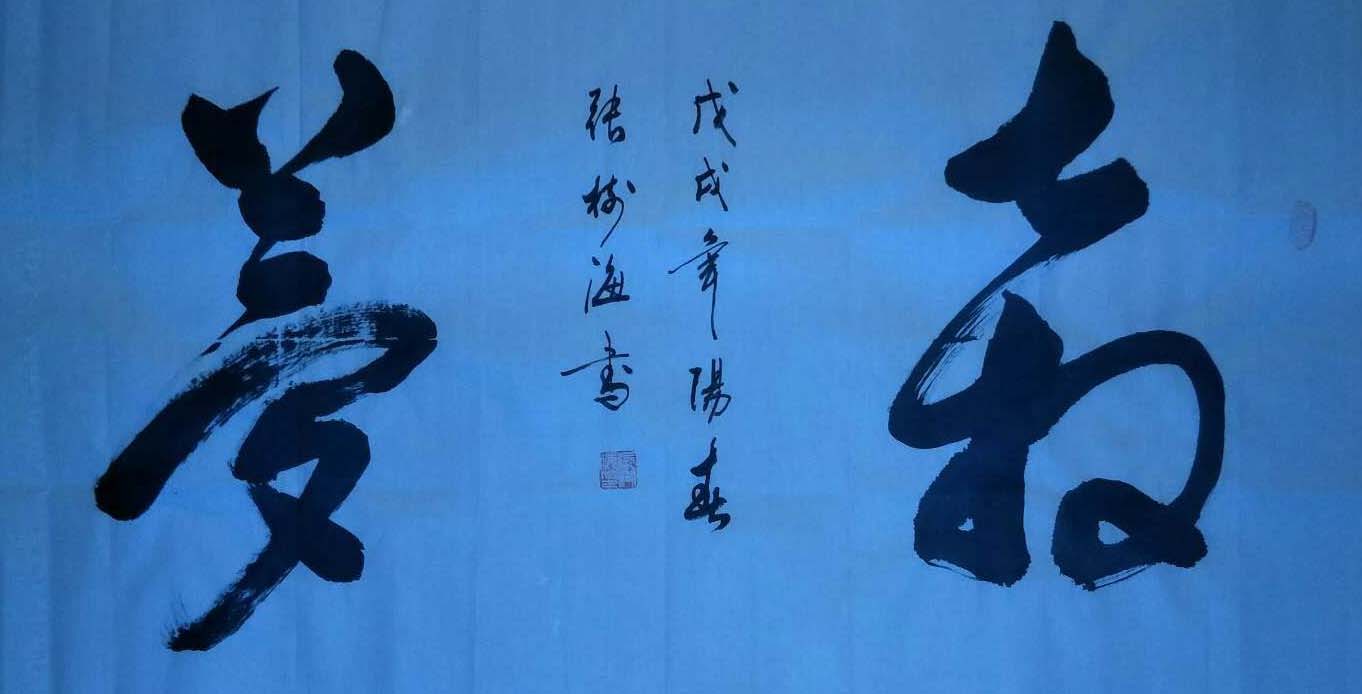 戊戌年陽春
張樹海書
夢